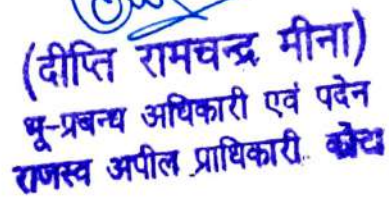 (दीप्ति रामचन्द्र मीना)
भू-प्रबन्ध अधिकारी एवं पदेन
राजस्व अपील प्राधिकारी कोटा